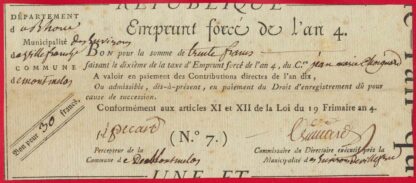 RÉPUBLIQUE
DÉPARTEMENT
d Rhone
Municipalité des Environs
de ville franche
COMMUNE
de montmelas
Bon pour 30 francs,
Emprunt forcé de l'an 4.
BON pour la somme de trente francs
faisant le dixième de la taxe d'Emprunt forcé de l'an 4, du C.en jean marie
A valoir en paiement des Contributions directes de l'an dix,
Ou admissible, dès-à-présent, en paiement du Droit d'enregistrement dû pour
cause de succession.
Conformément aux articles XI et XII de la Loi du 19 Frimaire an 4.
picard
(N.° 7.)
Percepteur de la
Commune de montmelas
Commissaire du Directoire exécutif près la
Municipalité des Environs de ville f
UNE ET